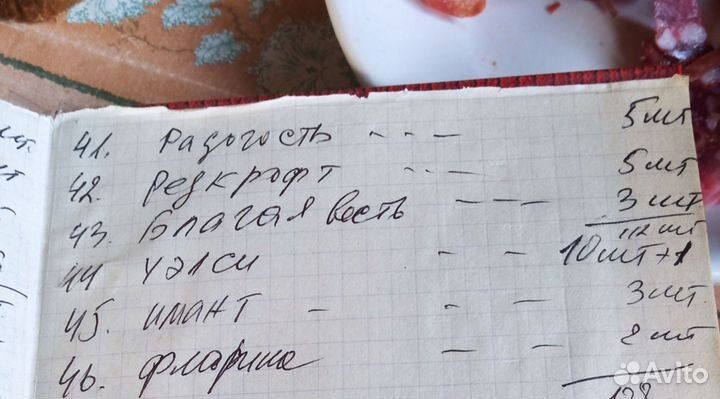 41. Радогость - - - 5 шт
42. Редкрофт - - - 5 шт
43. Благая весть - - - 3 шт
112 шт
44 Уэлси - - 10 шт+1
45. имант - - - 3 шт.
46. Фларина - - 2 шт
128
Avito